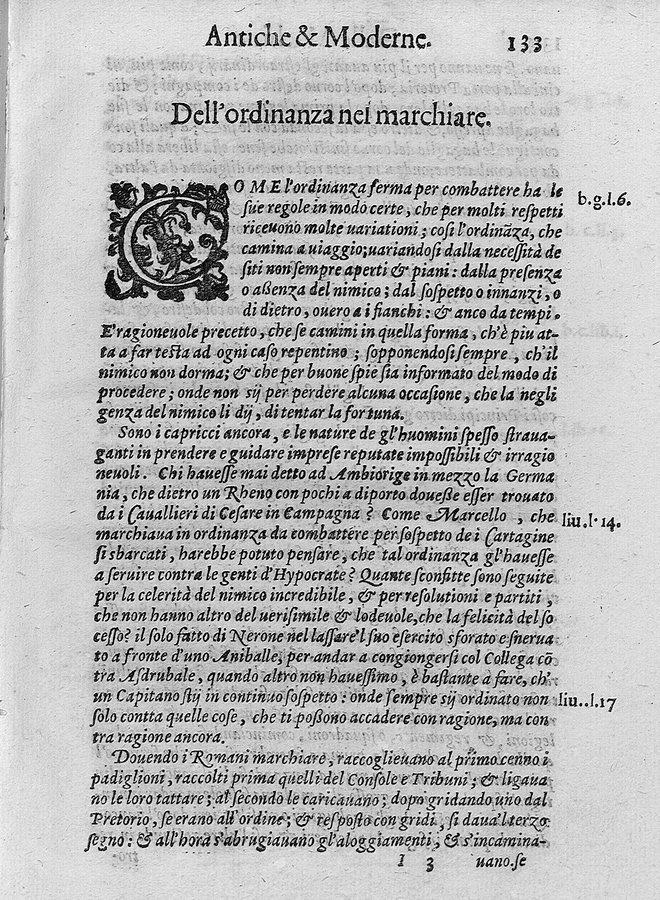 Antiche & Moderne. 133
Dell'ordinanza nel marchiare.
COME l'ordinanza ferma per combattere ha le
sue regole in modo certe, che per molti respetti
riceuono molte uariationi; cosi l'ordinãza, che
camina a uiaggio; uariandosi dalla necessità de
siti non sempre aperti & piani: dalla presenza
o aßenza del nimico; dal sospetto o innanzi, o
di dietro, ouero a i fianchi: & anco da tempi.
b.g.l.6.
E' ragioneuole precetto, che se camini in quella forma, ch'è piu at-
ta a far testa ad ogni caso repentino; sopponendosi sempre, ch'il
nimico non dorma; & che per buone spie sia informato del modo di
procedere; onde non sij per perdere alcuna occasione, che la negli
genza del nimico li dij, di tentar la fortuna.
Sono i capricci ancora, e le nature de gl'huomini spesso straua-
ganti in prendere e guidare imprese reputate impossibili & irragio
neuoli. Chi hauesse mai detto ad Ambiorige in mezzo la Germa
nia, che dietro un Rheno con pochi a diporto doueße esser trouato
da i Cauallieri di Cesare in Campagna? Come Marcello, che
liu.l.14.
marchiaua in ordinanza da combattere per sospetto de i Cartagine
si sbarcati, harebbe potuto pensare, che tal ordinanza gl'hauesse
a seruire contra le genti d'Hypocrate? Quante sconfitte sono seguite
per la celerità del nimico incredibile, & per resolutioni e partiti,
che non hanno altro del uerisimile & lodeuole, che la felicità del so
cesso? il solo fatto di Nerone nel lassare'l suo esercito sforato e snerua
to a fronte d'uno Aniballe, per andar a congiongersi col Collega cõ
tra Asdrubale, quando altro non hauessimo, è bastante a fare, ch'
un Capitano stij in continuo sospetto: onde sempre sij ordinato non
liu..l.17
solo contta quelle cose, che ti poßono accadere con ragione, ma con
tra ragione ancora.
Douendo i Romani marchiare, raccoglieuano al primo cenno i
padiglioni, raccolti prima quelli del Console e Tribuni; & ligaua
no le loro tattare; al secondo le caricauano; dopo gridando uno dal
Pretorio, se erano all'ordine; & resposto con gridi, si daua'l terzo
segno: & all'hora s'abrugiauano gl'aloggiamenti, & s'incamina-
I 3 uano.se